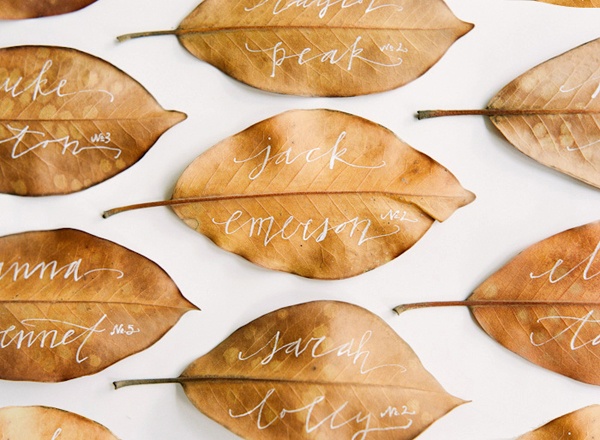 taylor
peak No.2
uke
ton No.3
jack
emerson No.2
anna
ennet No.5
sarah
lolly No.2
el
ta